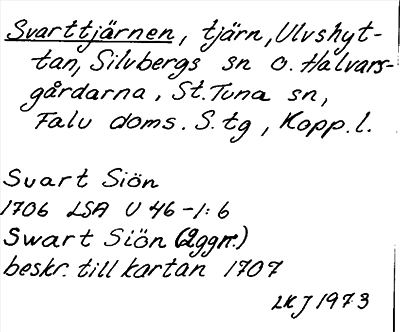 Svarttjärnen, tjärn, Ulvshyt-
tan, Silvbergs sn o. Halvars-
gårdarna, St. Tuna sn,
Falu doms. S. tg, Kopp. l.
Suart Siön
1706 LSA U 46-1:6
Swart Siön (2ggr.)
beskr. till kartan 1707
LKJ 1973